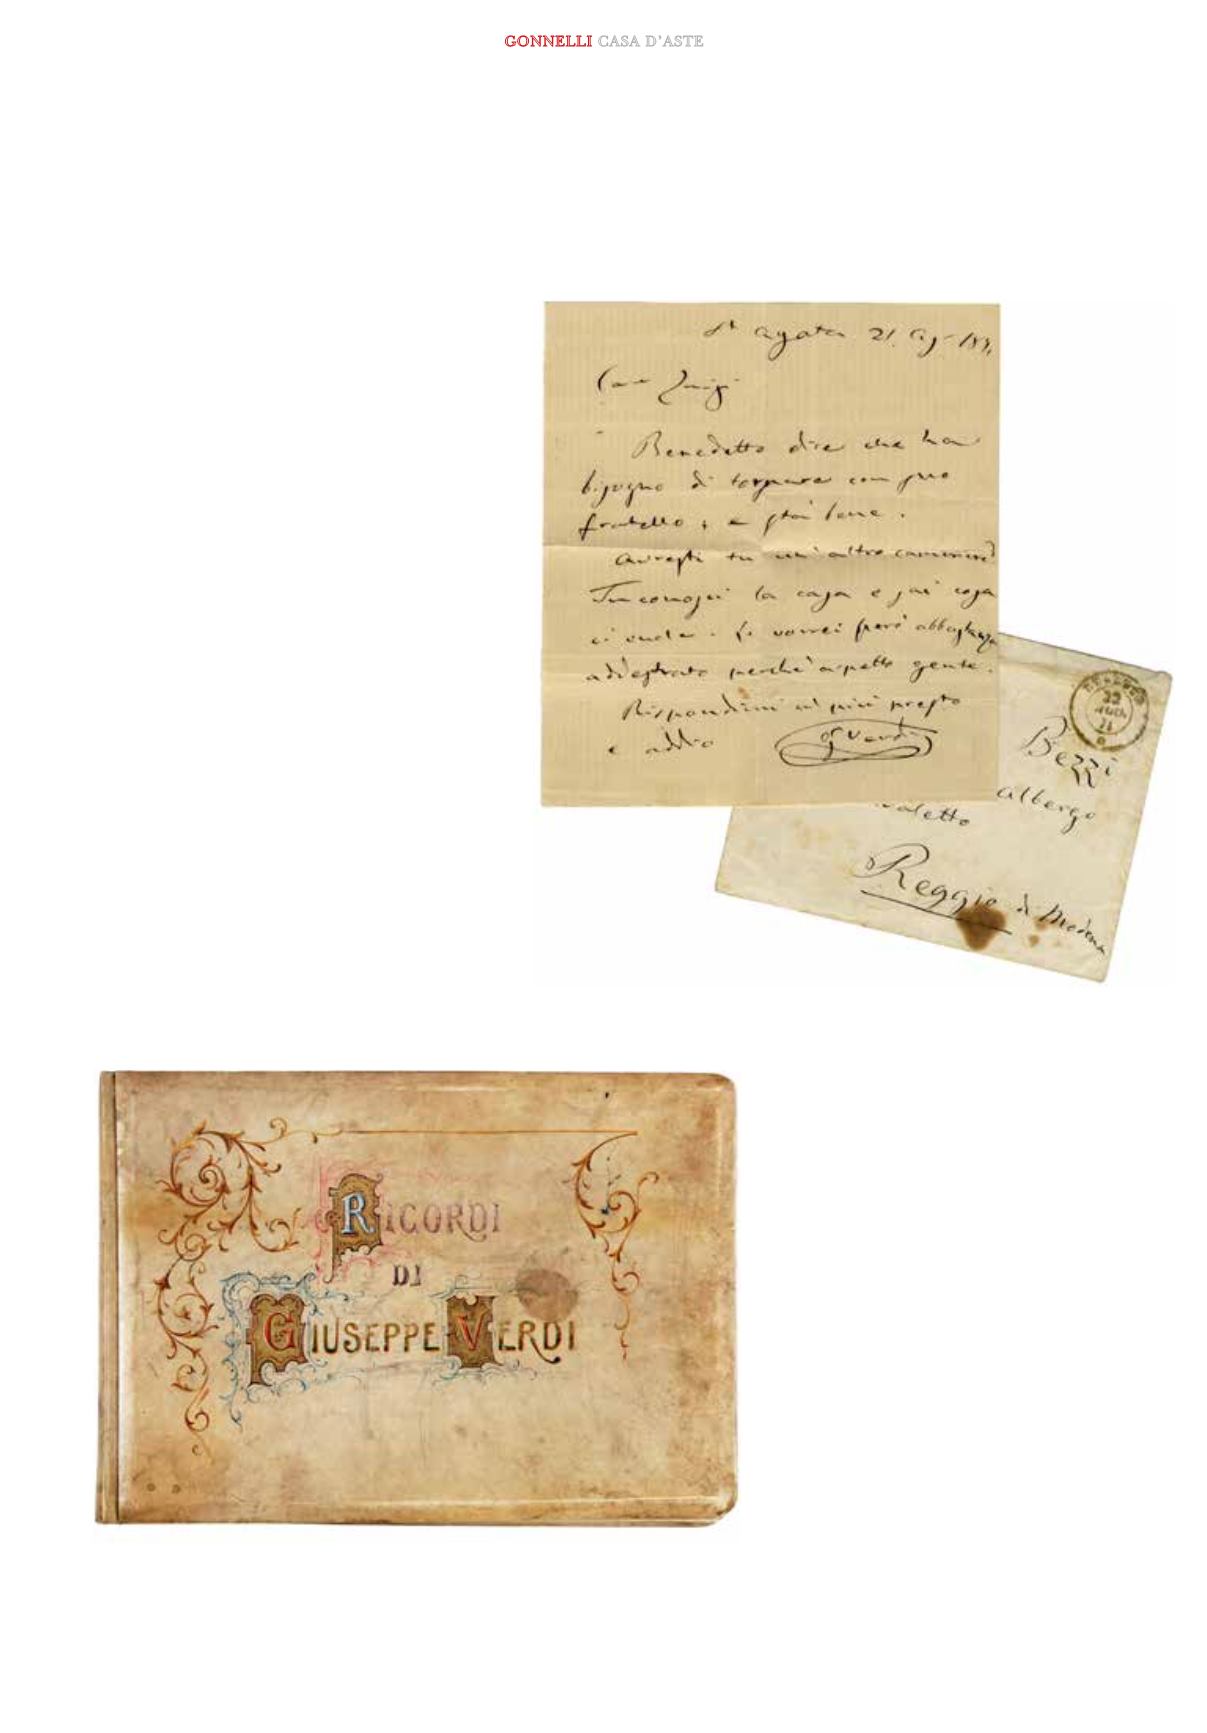 GONNELLI CASA D'ASTE
St Agata 21. Ag.
Caro Luigi
Benedetto dice che ha
bisogno di tornare con suo
fratello; e stai bene.
Avresti tu un altro
Tu conosci la casa e sai cosa
ci vuole. Lo vorrei però abbastanza
addestrato perchè aspetto gente.
Rispondimi al più presto
e addio
G Verdi
22
Bezzi
albergo
Reggio di Modena
RICORDI
DI
GIUSEPPE VERDI